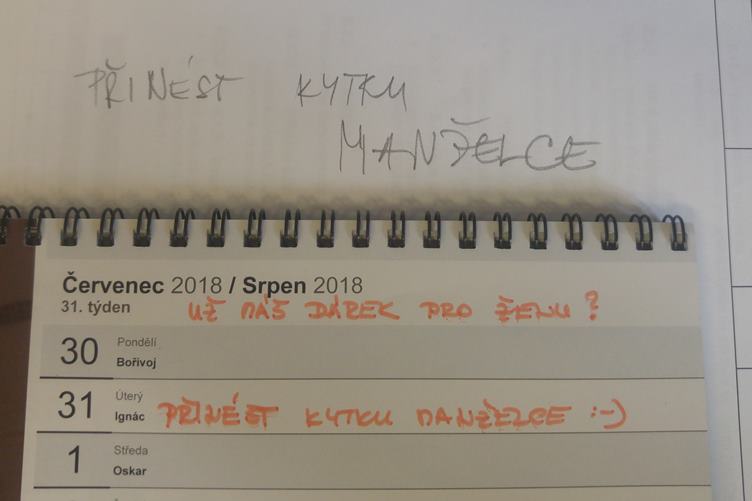 PŘINÉST KYTKU
MANŽELCE
Červenec 2018 / Srpen 2018
31. týden
UŽ MÁŠ DÁREK PRO ŽENU?
30 Pondělí
Bořivoj
31 Úterý
Ignác
PŘINÉST KYTKU MANŽELCE :-)
1 Středa
Oskar